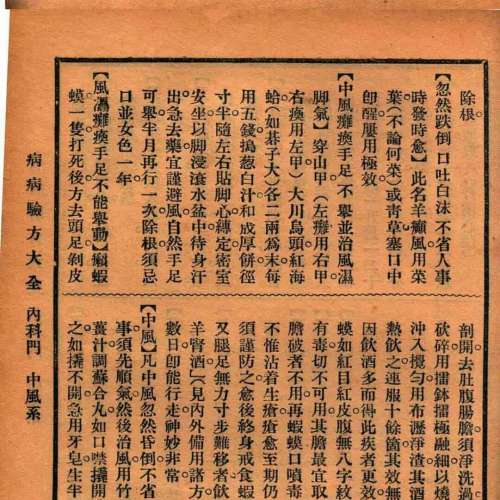 除根。
【忽然跌倒 口吐白沫 不省人事
時發時愈】此名羊癲風用菜
葉(不論何菜)或靑草塞口中
卽醒屢用極效
【中風癱瘓手足 不舉並治風濕
脚氣】穿山甲(左癱用右甲
右瘓用左甲)大川烏頭紅海
蛤(如碁子大)各二兩爲末每
用五錢搗葱白汁和成厚餅徑
寸半隨左右貼脚心縛定密室
安坐以脚浸滾水盆中待身汗
出急去藥宜謹避風自然手足
可舉半月再行一次除根須忌
口並女色一年
【風濕癱瘓手足不能舉動】癩蝦
蟆一隻打死後方去頭足剝皮
剖開去肚腹腸膽須淨洗過
砍碎用擂鉢擂極融細以燒
冲入攪勻用布瀝淨渣其酒
熱飲之連服十餘箇其效無
因飲酒多而得此疾者更效
蟆如紅目紅皮腹無八字紋
有毒切不可用其膽最宜取
膽破者不用再蝦蟆口噴毒
不惟沾着生瘡瘡愈至期仍
須謹防之愈後終身戒食蝦
又腿足無力寸步難移者飲
羊腎酒(見內外備用諸方
數日卽能行走神妙非常
【中風】凡中風忽然昏倒不省
事須先順氣然後治風用竹
薑汁調蘇合丸如口噤 開
之如 不開急用牙皂生半
病病驗方大全 內科門 中風系